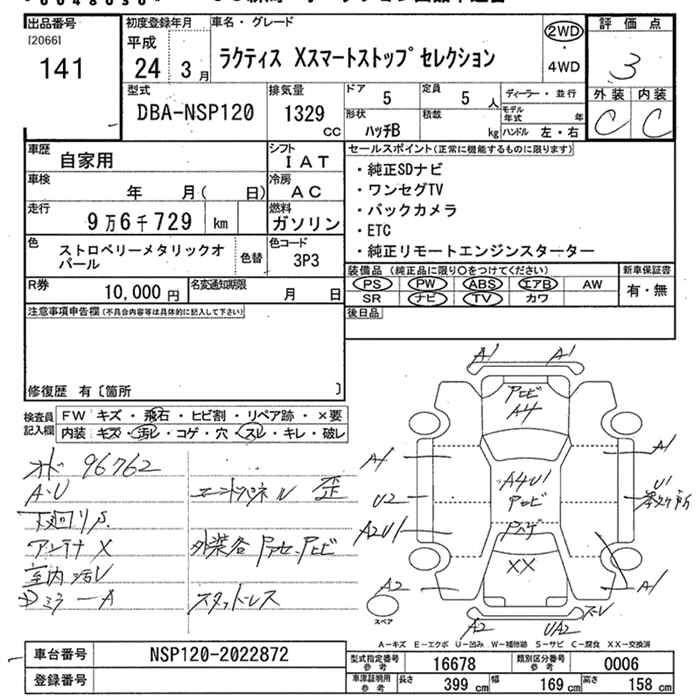 出品番号
[2066]
141
初度登録年月
平成
24 3月
車名・グレード
ラクティス Xスマートストップ セレクション
2WD
・
4WD
評価点
3
外装 内装
C C
型式
DBA-NSP120
排気量
1329
CC
ドア
5
定員
5 人
ディーラー・並行
形状
ハッチB
積載
kg
モデル年式 年
ハンドル 左・右
車歴
自家用
シフト
IAT
車検
年 月( 日)
冷房
AC
走行
9万6千729 km
燃料
ガソリン
色
ストロベリーメタリックオパール
色替
色コード
3P3
R券
10,000円
名変通知期限
月 日
セールスポイント(正常に機能するものに限ります)
・純正SDナビ
・ワンセグTV
・バックカメラ
・ETC
・純正リモートエンジンスターター
装備品(純正品に限り○をつけてください)
PS PW ABS エアB AW
SR ナビ TV カワ
新車保証書
有・無
後日品
注意事項申告欄(不具合内容等は具体的に記入して下さい)
修復歴 有〔箇所 〕
検査員記入欄
FW キズ・飛石・ヒビ割・リペア跡・×要
内装 キズ・汚レ・コゲ・穴・スレ・キレ・破レ
オド 96762
A・U
下廻りS
アンテナ X
室内汚レ
ミラーA
エンドパネル 歪
スタッドレス
A1 A1
アロビ
A4
A1 A1
U2
A4U1
アロビ
U1
A2U1
XX
A2 A1
A2 UA2
スペア
A-キズ E-エクボ U-凹み W-補修跡 S-サビ C-腐食 XX-交換済
車台番号
NSP120-2022872
登録番号
型式指定番号 参考
16678
類別区分番号 参考
0006
車庫証明用 参考
長さ 399 cm 幅 169 cm 高さ 158 cm